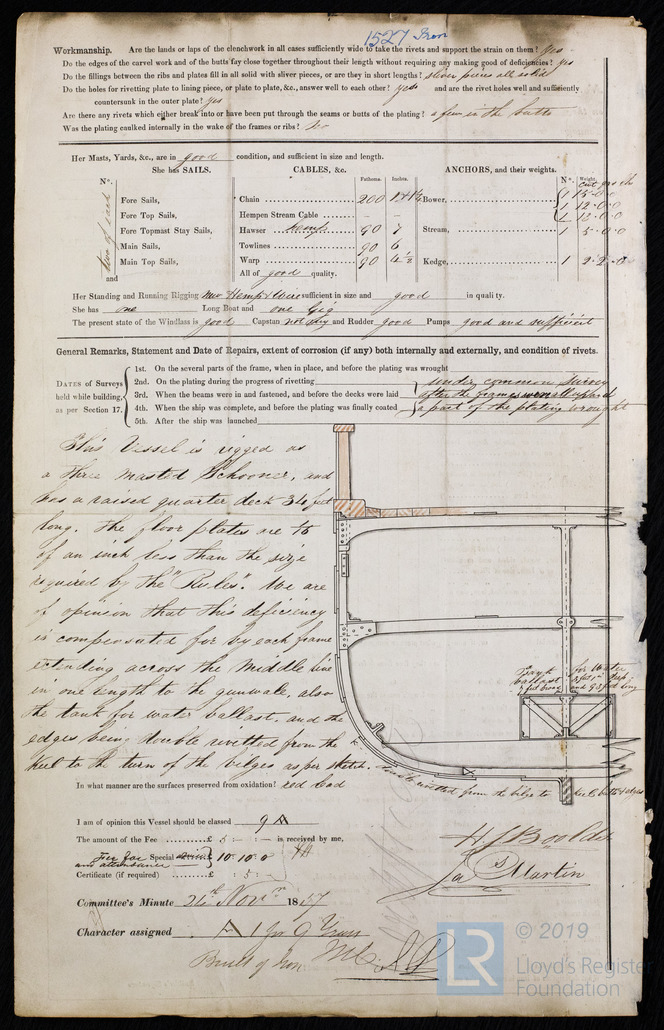 1527 Iron
Workmanship. Are the lands or laps of the clenchwork in all cases sufficiently wide to take the rivets and support the strain on them? Yes
Do the edges of the carvel work and of the butts fay close together throughout their length without requiring any making good of deficiencies? yes
Do the fillings between the ribs and plates fill in all solid with sliver pieces, or are they in short lengths? sliver pieces all solid
Do the holes for rivetting plate to lining piece, or plate to plate, &c., answer well to each other? yes and are the rivet holes well and sufficiently
countersunk in the outer plate? yes
Are there any rivets which either break into or have been put through the seams or butts of the plating? a few in the butts
Was the plating caulked internally in the wake of the frames or ribs? no
Her Masts, Yards, &c., are in good condition, and sufficient in size and length.
She has SAILS. CABLES, &c. ANCHORS, and their weights.
N°. Fathoms. Inches. N°. Weight.
two of each
Fore Sails, Chain 200 Bower, 1 15.0.0
Fore Top Sails, Hempen Stream Cable – – 1 12.0.0
1 13.0.0
Fore Topmast Stay Sails, Hawser Hemp 90 7 Stream, 1 5.0.0
Main Sails, Towlines 90 6
Main Top Sails, Warp 90 4½ Kedge, 1 2.2.0
and All of good quality.
Her Standing and Running Rigging New Hemp & Wire sufficient in size and good in quality.
She has one Long Boat and one Gig
The present state of the Windlass is good Capstan not any and Rudder good Pumps good and sufficient
General Remarks, Statement and Date of Repairs, extent of corrosion (if any) both internally and externally, and condition of rivets.
DATES of Surveys held while building, as per Section 17.
1st. On the several parts of the frame, when in place, and before the plating was wrought
2nd. On the plating during the progress of rivetting under common survey
3rd. When the beams were in and fastened, and before the decks were laid after the frames were all up and
4th. When the ship was complete, and before the plating was finally coated a part of the plating wrought
5th. After the ship was launched
This Vessel is rigged as
a three masted Schooner, and
has a raised quarter deck 34 feet
long. The floor plates are 1/16
of an inch less than the size
required by the "Rules". We are
of opinion that this deficiency
is compensated for by each frame
extending across the middle line
in one length to the gunwale, also
the tank for water ballast, and the
edges being double rivetted from the
keel to the turn of the bilges as per sketch.
Tank for Water
ballast
and 93 feet long
double rivetted from the bilge to keel, butts & edges
In what manner are the surfaces preserved from oxidation? red lead
I am of opinion this Vessel should be classed 9 A
The amount of the Fee £ 5 : – : – is received by me,
Fee for Special and attendance 10.10.0
Certificate (if required) £ : 5 :
H J Boolds
Jas Martin
Committee's Minute 24th Novr 1857
Character assigned A 1 for 9 Years
Built of Iron
LR
© 2019
Lloyd's Register
Foundation